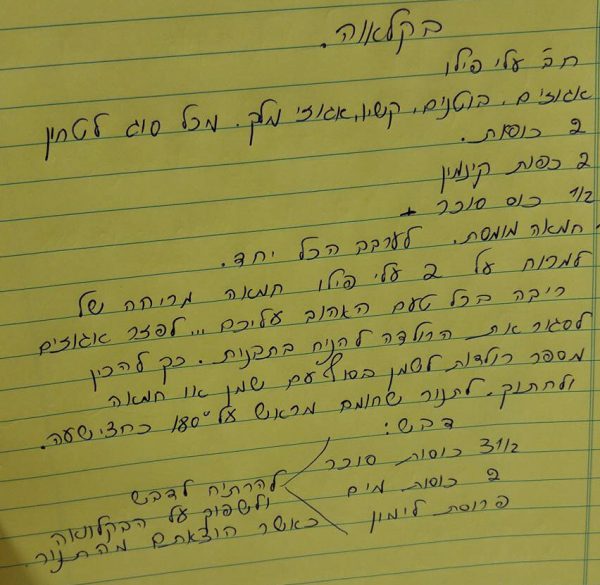 בקלאווה.
חב' עלי פילו
אגוזים, בוטנים, קשיו, אגוזי מלך. מכל סוג לטחון
2 כוסות.
2 כפות קינמון
1/2 כוס סוכר +
חמאה מומסת. לערבב הכל יחד.
למרוח על 2 עלי פילו חמאה מריחה של
ריבה בכל טעם האהוב עליכם... לפזר אגוזים
לסגור את הרולדה להניח בתבנית. כך להכין
מספר רולדות לשמן בסוף עם שמן או חמאה
ולחתוך. לתנור שחומם מראש על 180° כחצי שעה.
דבש:
3 1/2 כוסות סוכר
2 כוסות מים
פרוסת לימון
להרתיח לדבש
ולשפוך על הבקלוואה
כאשר הוצאתם מהתנור.